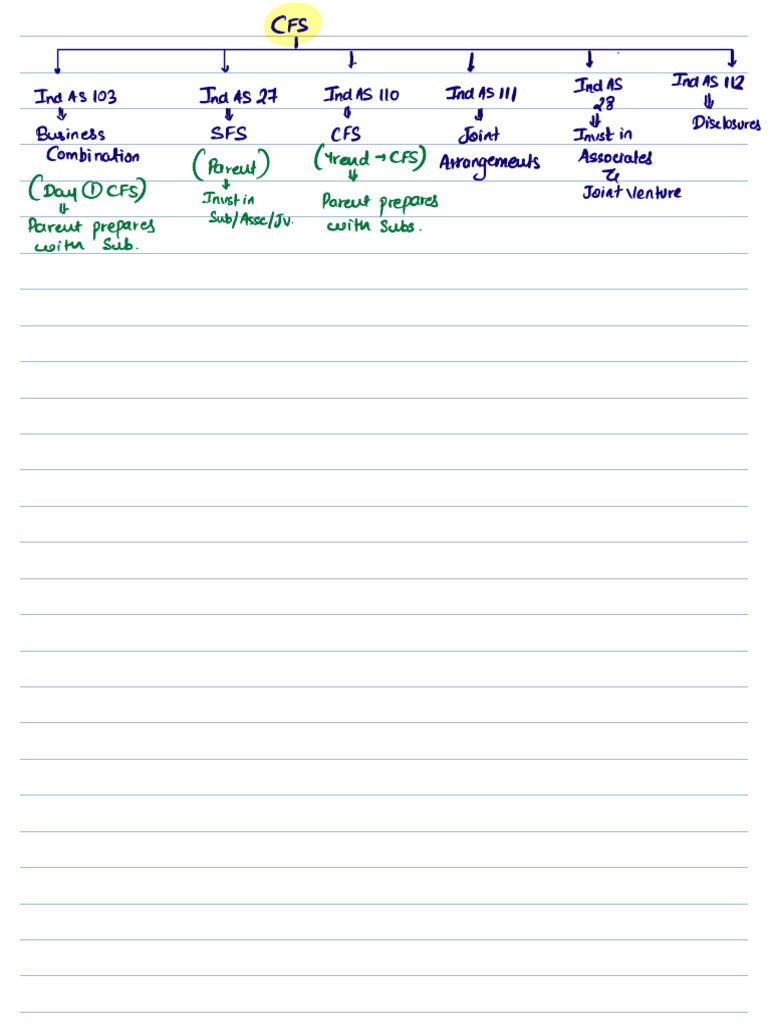 CFS
Ind AS 103
Business
Combination
(Day ① CFS)
Parent prepares
with Sub.
Ind AS 27
SFS
(Parent)
Invst in
Sub/Assc/Jv.
Ind AS 110
CFS
(Yrend → CFS)
Parent prepares
with Subs.
Ind AS 111
Joint
Arrangements
Ind AS
28
Invst in
Associates
&
Joint Venture
Ind AS 112
Disclosures